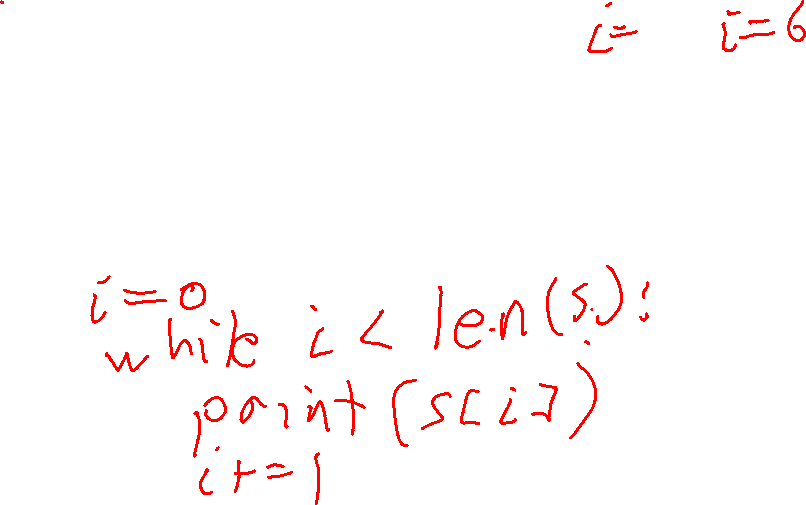 i= i=6
i=0
while i < len(s):
print(s[i])
i+=1